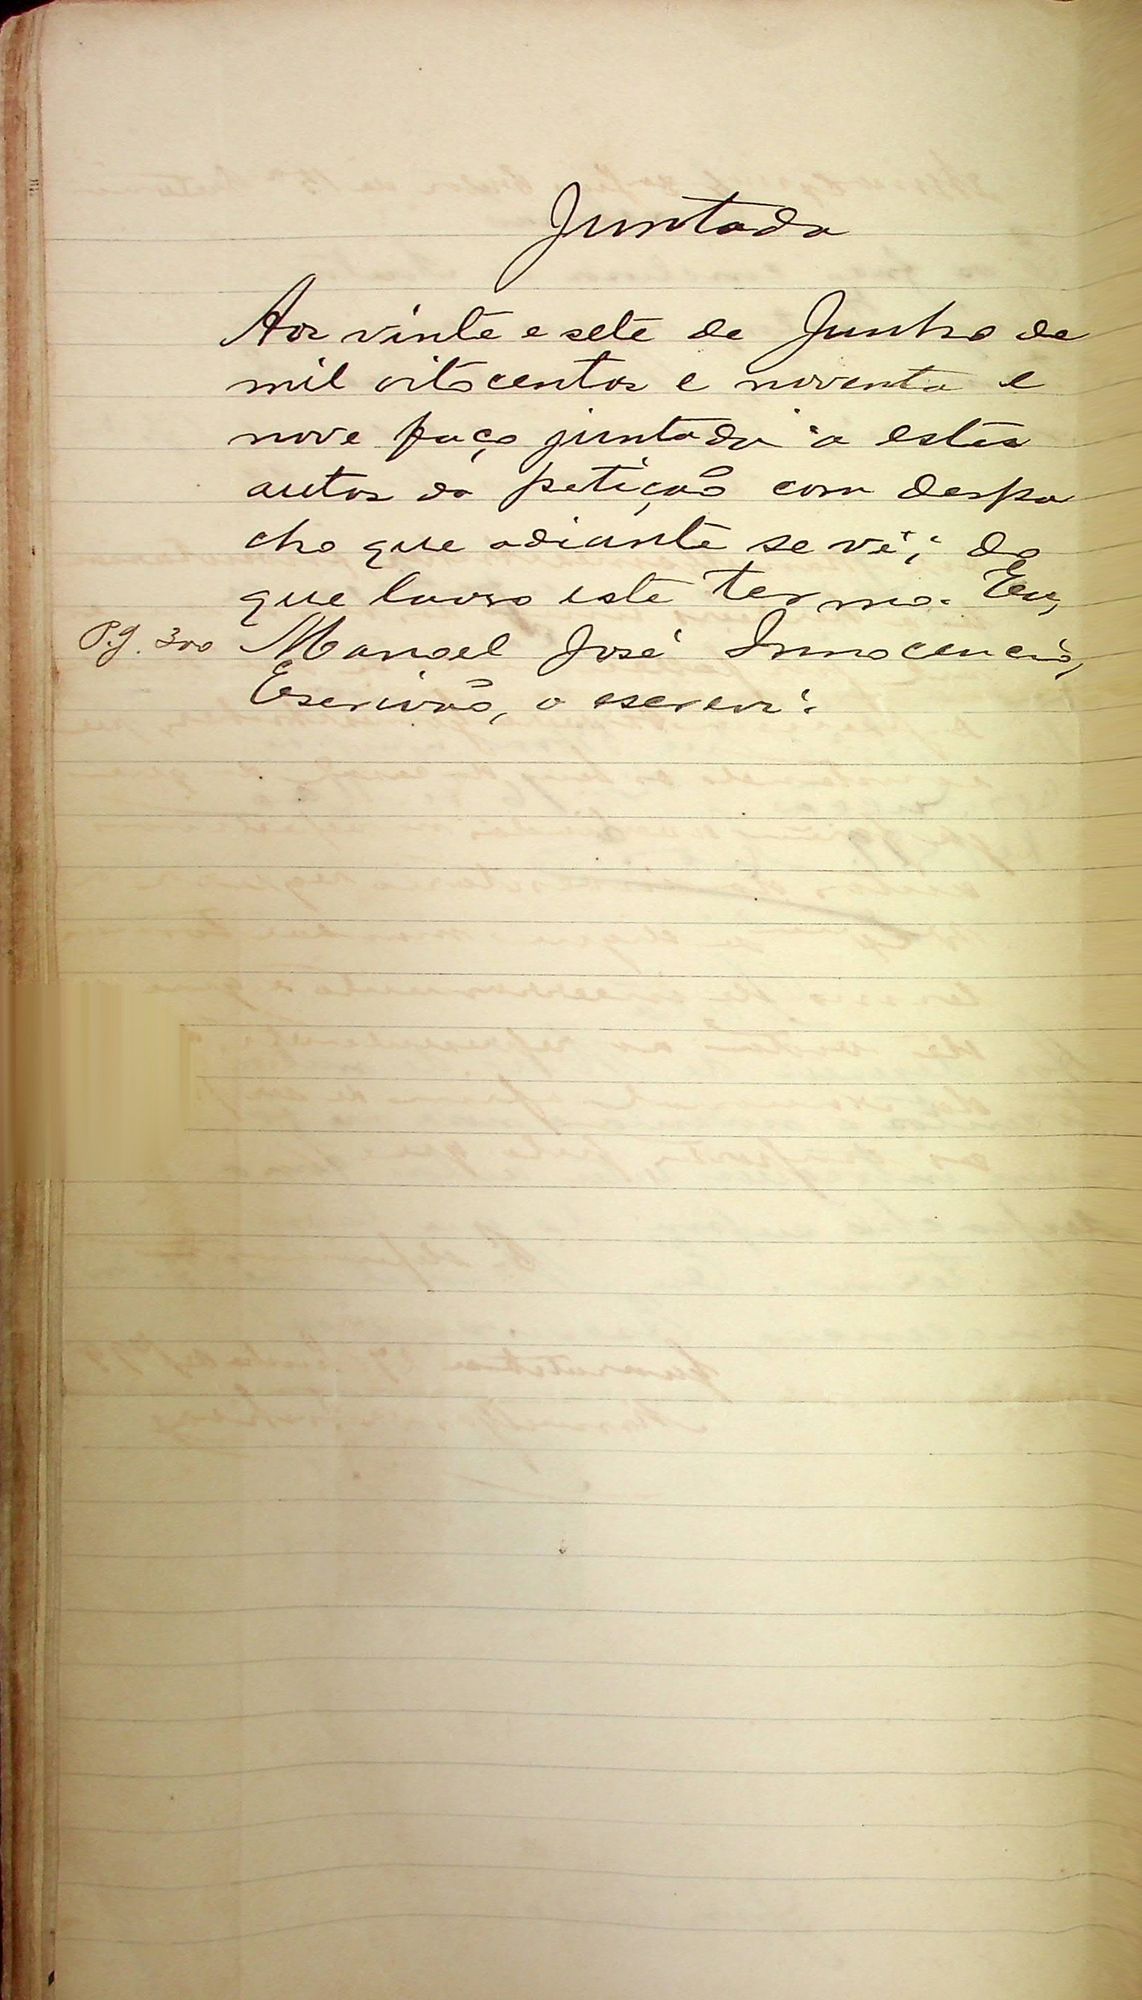 Juntada
Aos vinte e sete de Junho de
mil oitocentos e noventa e
nove faço juntada a estes
autos da petição com despa
cho que adiante se vê; do
que lavro este termo. Eu,
P.g. 300 Manoel José Innocencio,
Escrivão, o escrevi.